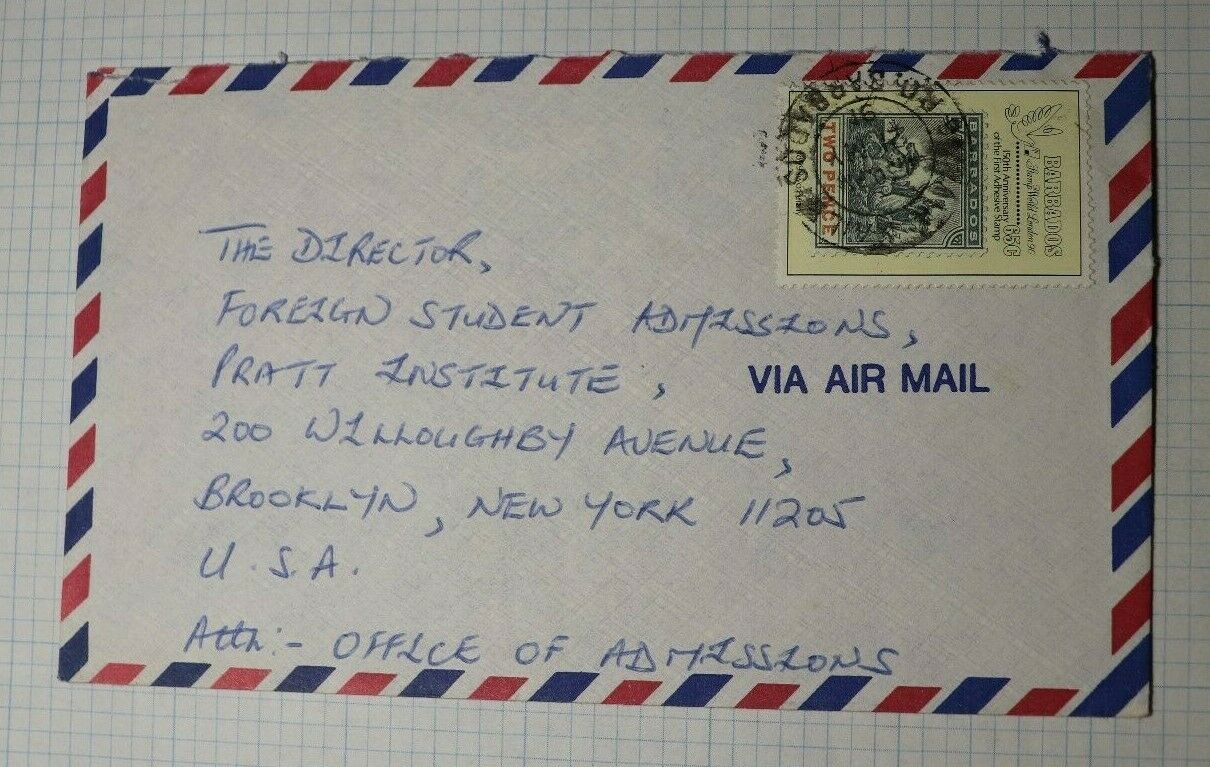 BARBADOS
Stamp World London 90
150th Anniversary
of the First Adhesive Stamp
65c
BARBADOS
TWO PENCE
BARBADOS
THE DIRECTOR,
FOREIGN STUDENT ADMISSIONS,
PRATT INSTITUTE,
VIA AIR MAIL
200 WILLOUGHBY AVENUE,
BROOKLYN, NEW YORK 11205
U.S.A.
Attn:- OFFICE OF ADMISSIONS